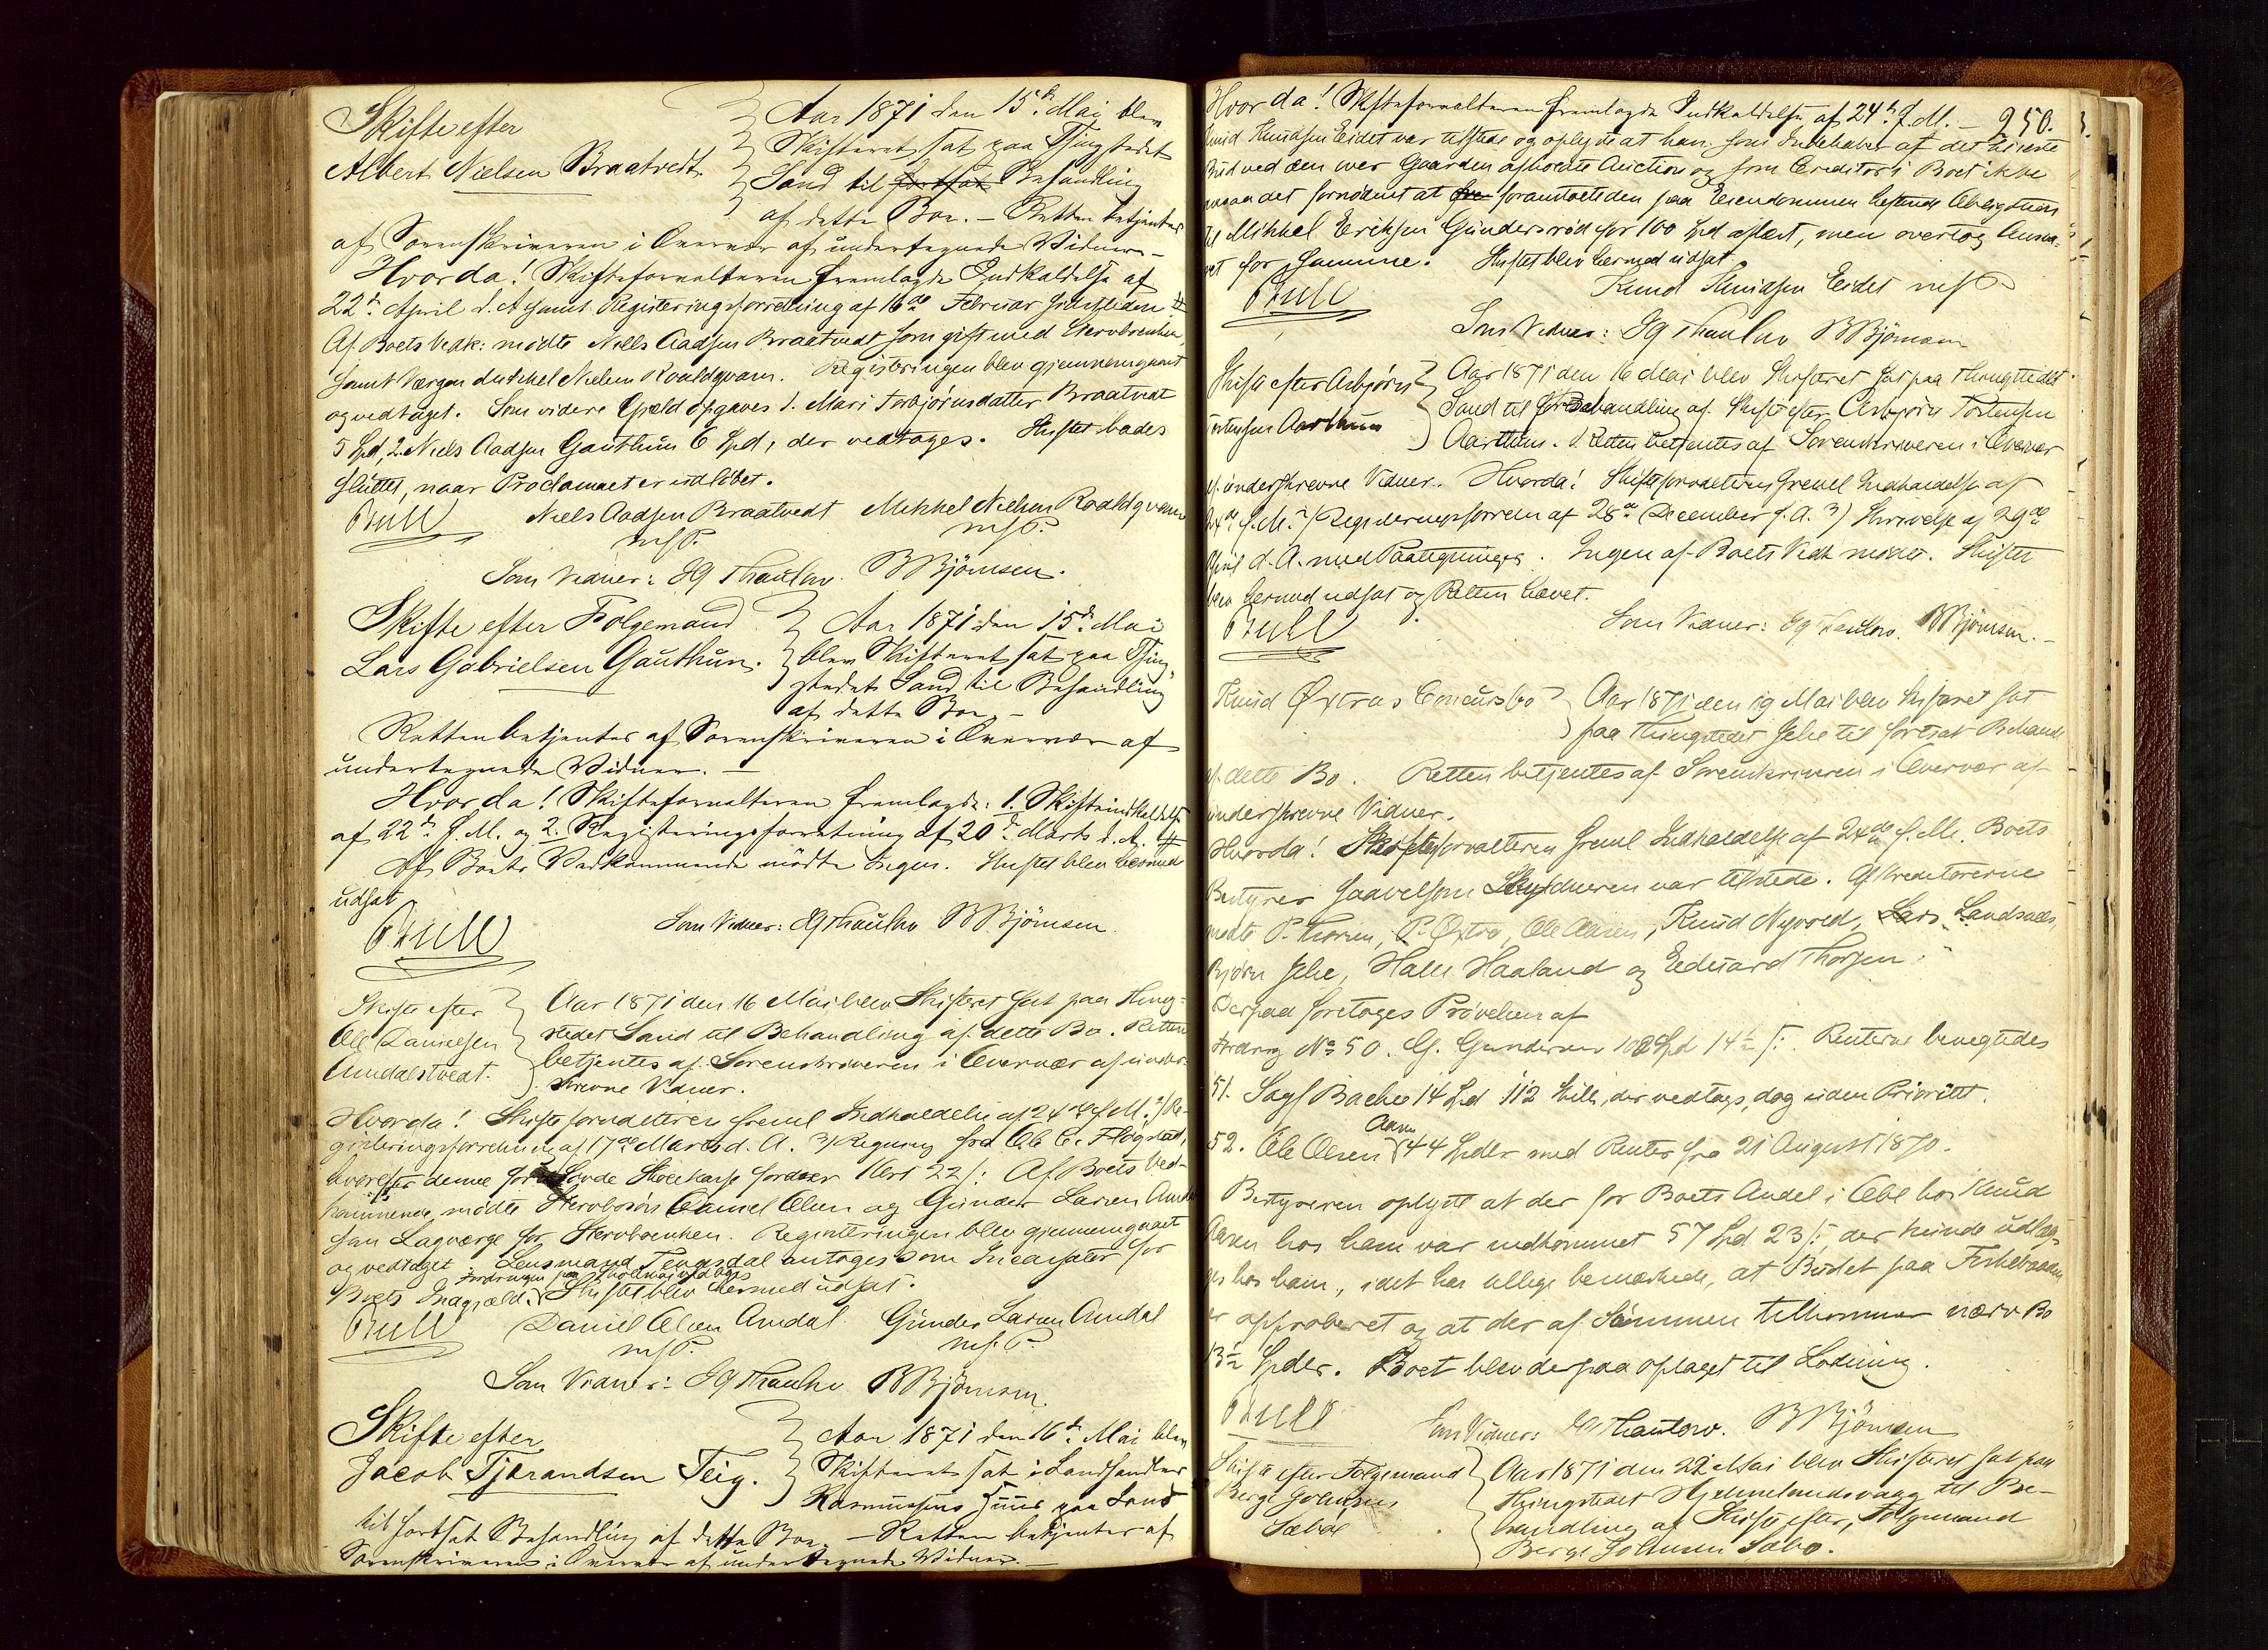 Skifte efter
Albert Nielsen Braatvedt.
Aar 1871 den 15de Mai blev
Skifteret sat paa Thingstedet
Sand til fortsat Behandling
af dette Bo. – Retten betjentes
af Sorenskriveren i Overvær af undertegnede Vidner. –
Hvorda! Skifteforvalteren fremlagde Indkaldelse af
22de April d. A. samt Registeringsforretning af 16de Februar
Af Boets Vedk: mødte Niels Aadsen Braatvedt som gift med Stervboenken,
samt Værgen Mikkel Nielsen Roaldqvam. Registeringen blev gjennemgaaet
og vedtaget. Som videre Gjæld opgaves 1. Mari Torbjørnsdatter Braatvedt
5 Spd, 2. Niels Aadsen Gauthun 6 Spd, der vedtages. Skiftet bades
sluttet, naar Proclamaet er udløbet.
Bull Niels Aadsen Braatvedt Mikkel Nielsen Roaldqvam
m.f.P. m.f.P.
Som Vidner: Eg Thaulow. B Bjørnsen.
Skifte efter Folgemand
Lars Gabrielsen Gauthun.
Aar 1871 den 15de Mai
blev Skifteret sat paa Thing-
stedet Sand til Behandling
af dette Bo. –
Retten betjentes af Sorenskriveren i Overvær af
undertegnede Vidner. –
Hvorda! Skifteforvalteren fremlagde: 1. Skifteindkaldelse
af 22de f. M. og 2. Registeringsforretning af 20de Marts d. A.
Af Boets Vedkommende mødte Ingen. Skiftet blev hermed
udsat
Bull Som Vidner: Eg Thaulow B Bjørnsen.
Skifte efter
Ole Danielsen
Amdalstvedt.
Aar 1871 den 16 Mai blev Skifteret sat paa Thing-
stedet Sand til Behandling af dette Bo. Retten
betjentes af Sorenskriveren i Overvær af under-
skrevne Vidner.
Hvorda! Skifteforvalteren freml Indkaldelse af 24de f M. 2) Re-
gisteringsforretning af 17de Marts d. A. 3) Regning fra Ole E. Fløgstad,
hvorefter denne for Sovde Skolekasse fordrer 22 s. Af Boets Ved-
kommende mødte Stervbosøn Daniel Olsen og Gunder Larsen Amdal
som Lagværge for Stervboenken. Registeringen blev gjennemgaaet
og vedtaget. Lensmand Tengsdal antoges som Incassator for
Fordringen paa vedtages
Boets Indgjæld. Skiftet blev hermed udsat.
Bull Daniel Olsen Amdal. Gunder Larsen Amdal
m.f.P. m.f.P.
Som Vidner: Eg Thaulow B Bjørnsen.
Skifte efter
Jacob Tjerandsen Teig.
Aar 1871 den 16de Mai blev
Skifteret sat i Landhandler
Rasmussens Huus paa Sand
til fortsat Behandling af dette Bo. – Retten betjentes af
Sorenskriveren i Overvær af undertegnede Vidner. –
950.
Hvorda! Skifteforvalteren fremlagde Indkaldelse af 24de f. M. –
Knud Knudsen Eidet var tilstede og oplyste at han som Indehaver af det høieste
Bud ved den over Gaarden afholdte Auction og som Creditor i Boet ikke
det fornødent at foranstalte den paa Eiendommen heftende Obligation
til Mikkel Eriksen Gundersrød for 100 Spd aflæst, men overtog Ansva-
ret for samme. Skiftet blev hermed udsat
Bull Knud Knudsen Eidet m.f.P.
Som Vidner: Eg Thaulow B Bjørnsen
Skifte efter Asbjørn
Tostensen Aarthun
Aar 1871 den 16 Mai blev Skifteret sat paa Thingstedet
Sand til Behandling af Skifte efter Asbjørn Tostensen
Aarthun. Retten betjentes af Sorenskriveren i Overvær
af underskrevne Vidner. Hvorda! Skifteforvalteren freml Indkaldelse af
24de f. M. 2) Registeringsforretn af 28de December f. A. 3) Skrivelse af 29de
April d. A. med Paategninger. Ingen af Boets Vedk mødte. Skiftet
blev hermed udsat og Retten hævet.
Bull Som Vidner: Eg Thaulow. B Bjørnsen. –
Knud Øxtras Concursbo
Aar 1871 den 19 Mai blev Skifteret sat
paa Thingstedet Jelse til fortsat Behandl
af dette Bo. Retten betjentes af Sorenskriveren i Overvær af
underskrevne Vidner.
Hvorda! Skifteforvalteren freml Indkaldelse af 24de f. M. Boets
Bestyrer saavelsom Skyldneren var tilstede. Af Kreditorerne
mødte P. Thorsen, P. Øxtra, Ole Aasen, Knud Nyvold, Lars Landsnæs,
Bjørn Jelse, Halle Haaland og Edvard Thorsen.
Derpaa foretoges Prøvelsen af
Fordring No 50. G. Gundersen 102 Spd 14½ s. Renterne benegtedes
51. Sagf Bache 14 Spd 112 Skill, der vedtages, dog uden Prioritet.
Aasen
52. Ole Olsen 44 Spdlr med Renter fra 21 August 1870.
Bestyreren oplyste at der for Boets Andel i hos Knud
Aasen hos ham var indkommet 57 Spd 23 s, der kunde udlæg-
ges hos ham, idet han tillige bemærkede, at Budet paa
er approberet og at der af Summen tilkommer nærv Bo
13½ Spdlr. Boet blev derpaa optaget til Lodning.
Bull Som Vidner: Eg Thaulow. B Bjørnsen
Skifte efter Folgemand
Berge Johnsen
Sæbø
Aar 1871 den 22 Mai blev Skifteret sat paa
Thingstedet Hjelmelandsvaag til Be-
handling af Skifte efter Folgemand
Berge Johnsen Sæbø.